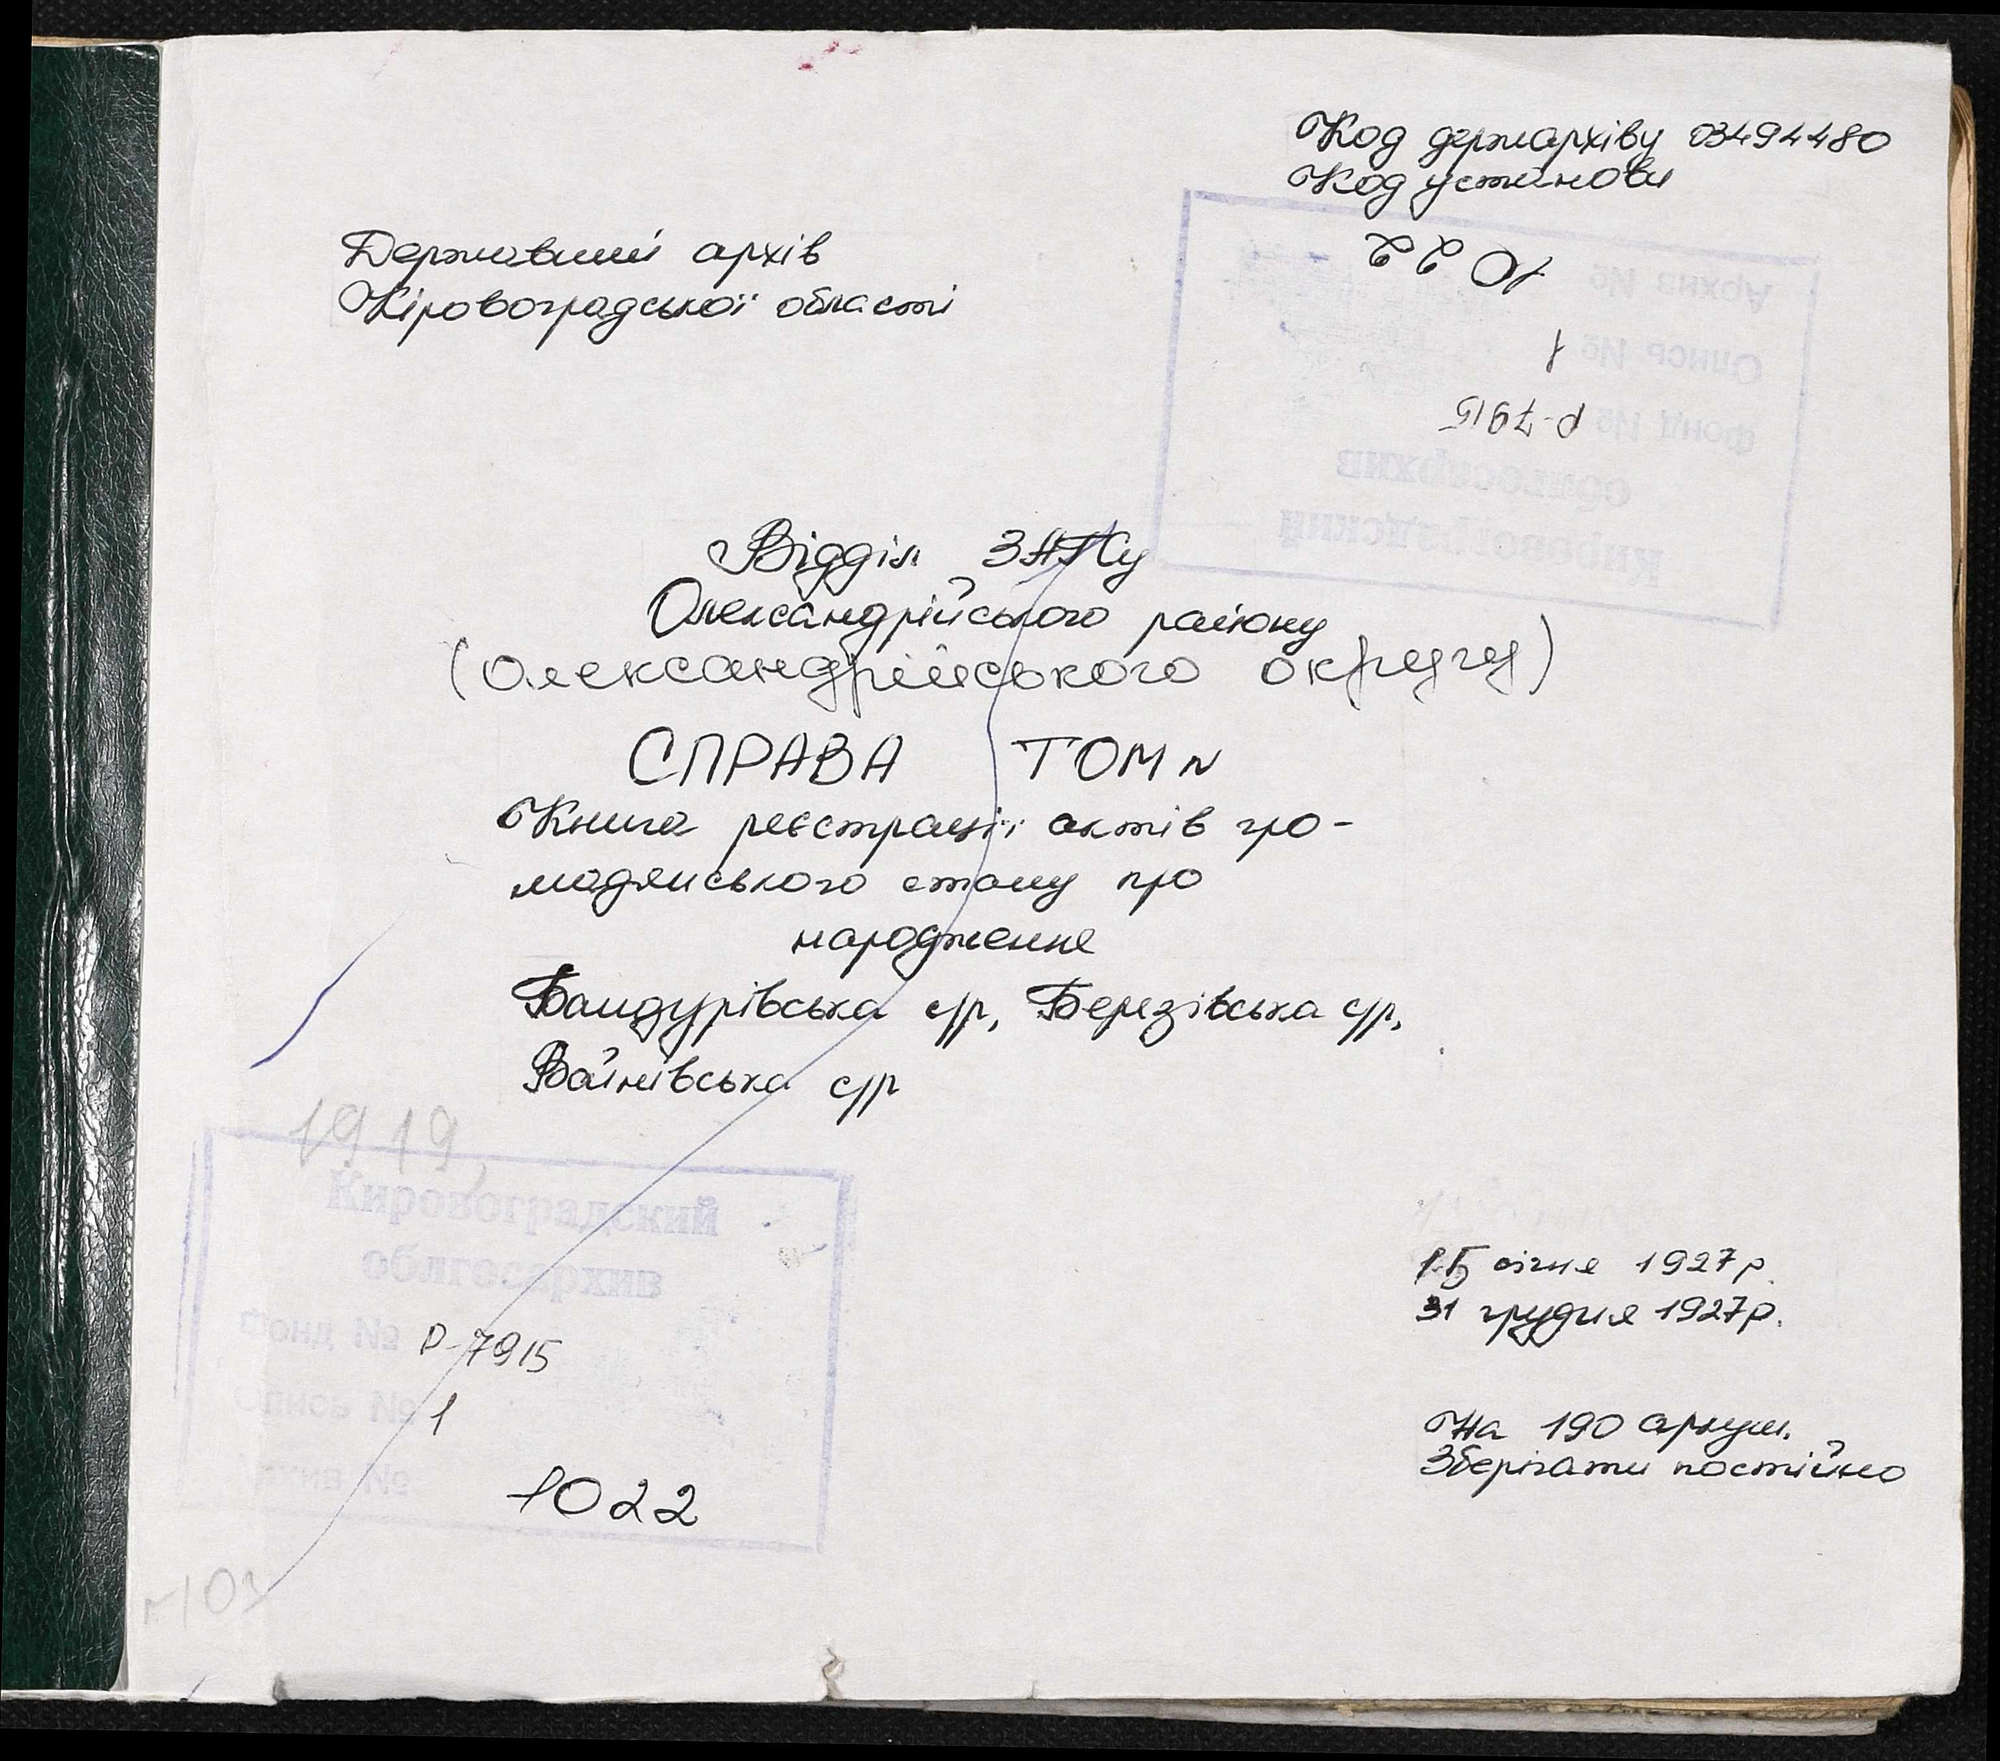 Код держархіву 03494480
Код установи
Державний архів
Кіровоградської області
Кировоградский
облгосархив
Фонд № Р-7915
Опись № 1
Архив № 1022
Відділ ЗАГСу
Олександрійського району
(Олександрійського округу)
СПРАВА ТОМ N
Книга реєстрації актів гро-
мадянського стану про
народження
Бандурівська с/р, Березівська с/р,
Войнівська с/р
1919,
Кировоградский
облгосархив
Фонд № Р-7915
Опись № 1
Архив № 1022
15 січня 1927 р.
31 грудня 1927 р.
На 190 аркуш.
Зберігати постійно